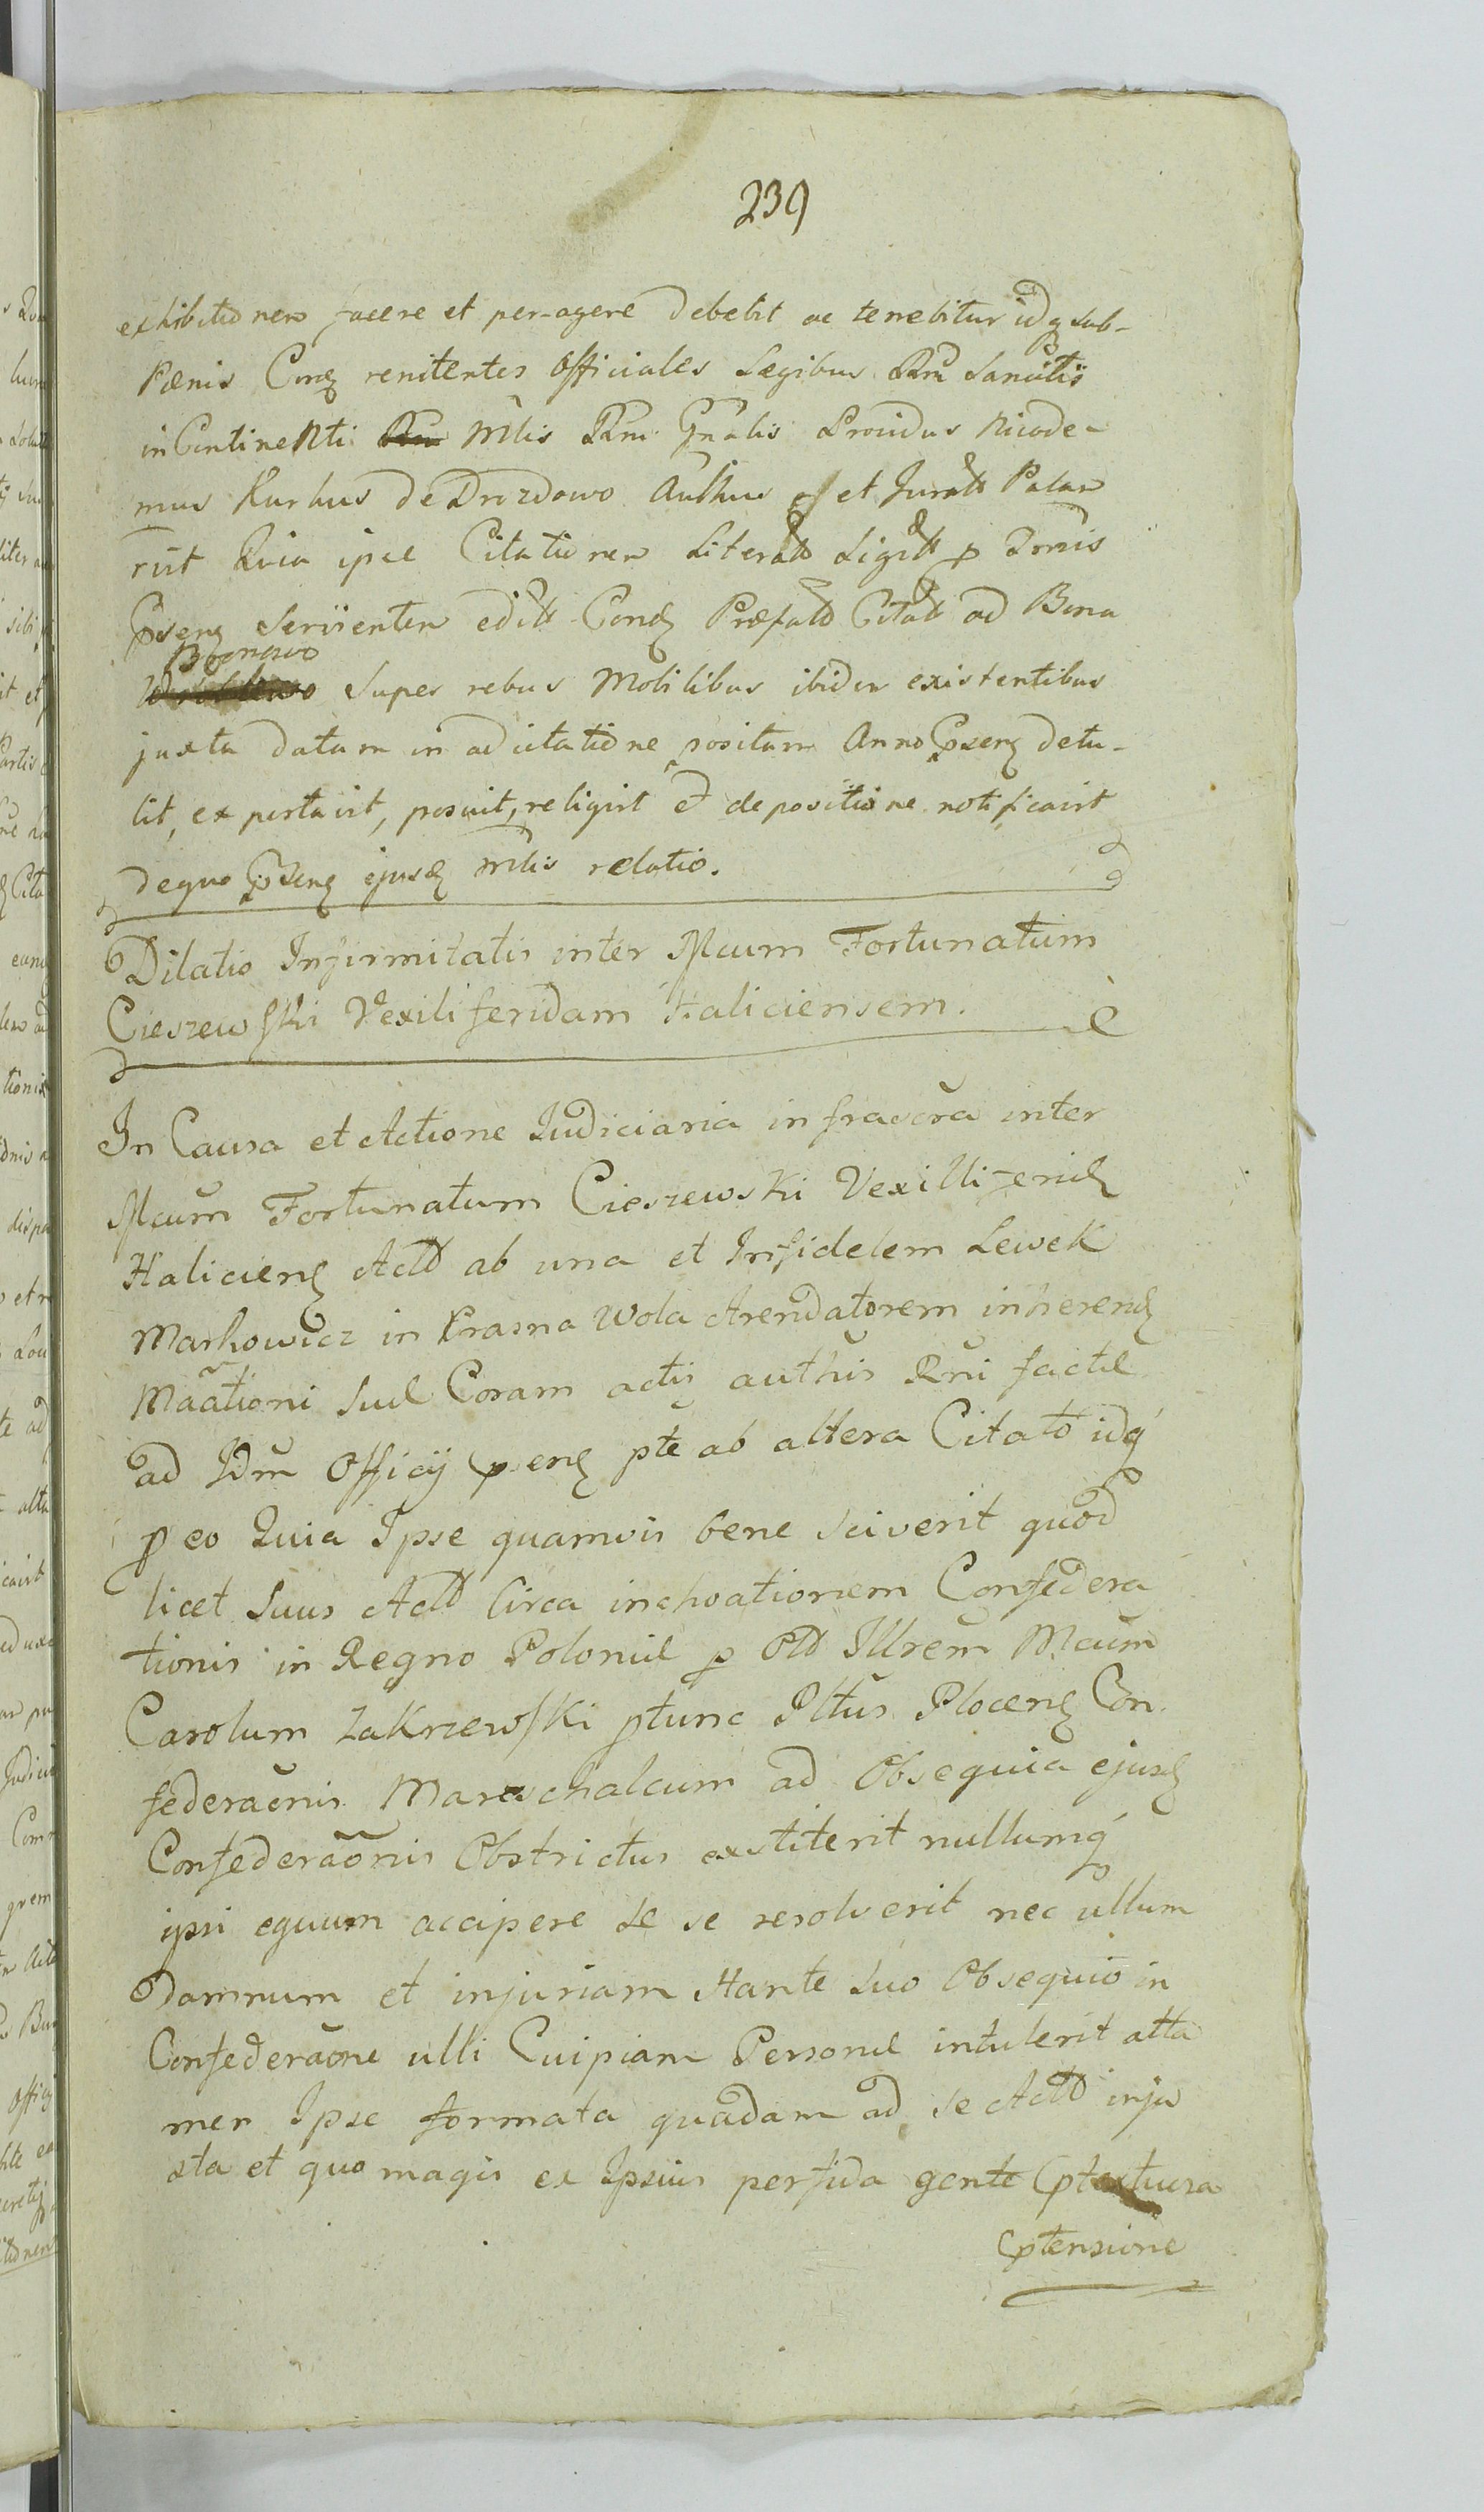 239
exhibitionem facere et per-agere debebit ac tenebitur idq sub-
Pœnis Con renitentes Officiales Legibus Rni Sancitis
in Continenti Mlis Rni Gnalis Providus Nicode-
mus Kurkus de Drozdowo Authus et Juratt Palam
rit Quia ipse Citationem Literatt Sigitt p Dmis
pseng servientem editt Cong Præfatt Citatt ad Bona
super rebus Mobilibus ibidem existentibus
juxta datam in ad citatione positam Anno pseng detu-
lit, exportavit, posuit, religit et depositione notificavit
dequo pseng ejusd Mlis relatio.
Dilatio Infirmitatis inter Mcum Fortunatum
Cieszewski Vexiliferidam Haliciensem.
In Causa et Actione Judiciaria infrascra inter
Mcum Fortunatum Cieszewski Vexilliferid
Halicieng Actt ab una et Infidelem Lewek
Markowicz in Krasna Wola Arendatorem inherend
Maationi suæ Coram actis authis Rni factæ
ad Idm Officij pseng pte ab altera Citato idq
p eo Quia Ipse quamvis bene sciverit quod
licet Suus Actt Circa inchoationem Confedera
tionis in Regno Poloniæ p Ott Illrem Mcum
Carolum Zakrzewski ptunc Pltus Ploceng Con
federaonis Marschalcum ad Obsequia ejusd
Confederaonis Obstrictus extiterit nullumq
ipsi equum accipere se se resolverit nec ullum
Damnum et injuriam stante suo Obsequio in
Confederaone ulli Cuipiam Personæ intulerit atta
men Ipse formata quadam ad se Actt inju
sta et quo magis ex Ipsius perfida gente ptextuosa
ptensione